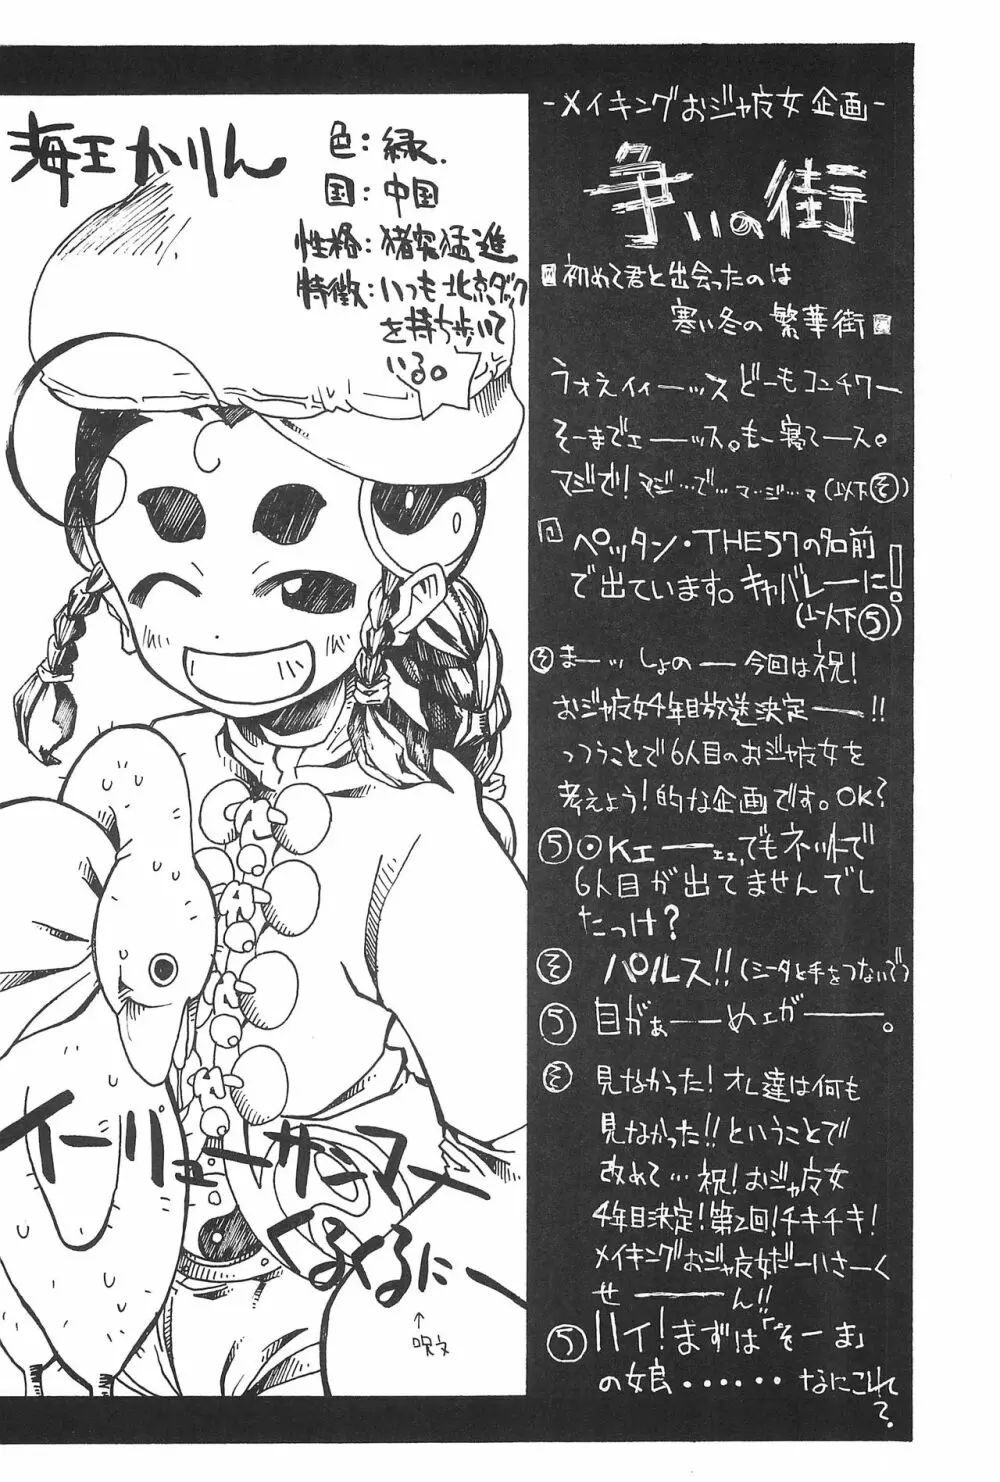 海王かりん
色：緑.
国：中国
性格：猪突猛進
特徴：いつも北京ダック
を持ち歩いて
いる。
イーリューザーマー
くるくるにー
↑
呪文
-メイキングおジャ魔女企画-
争いの街
初めて君と出会ったのは
寒い冬の繁華街
うォえイィーッス どーもコンチワー
そーまでェーーッス。もー寝てース。
マジで！マジ…で…マ…ジ…マ(以下そ)
ペッタン・THE57の名前
で出ています。キャバレーに！
(以下5)
そ まーッ しょのー 今回は祝！
おジャ魔女4年目放送決定ーー!!
っつうことで6人目のおジャ魔女を
考えよう！的な企画です。OK？
5 OKェーーェェ,でも
6人目が出てませんでし
たっけ？
そ バルス!!(シータと手をつないで)
5 目がぁーーめェがーーー。
そ 見なかった！オレ達は何も
見なかった!!ということで
改めて…祝！おジャ魔女
4年目決定！第2回！チキチキ！
メイキングおジャ魔女だーいさーく
せーーーん!!
5 ハイ！まずは「そーま」
の娘・・・・・・なにこれ
？